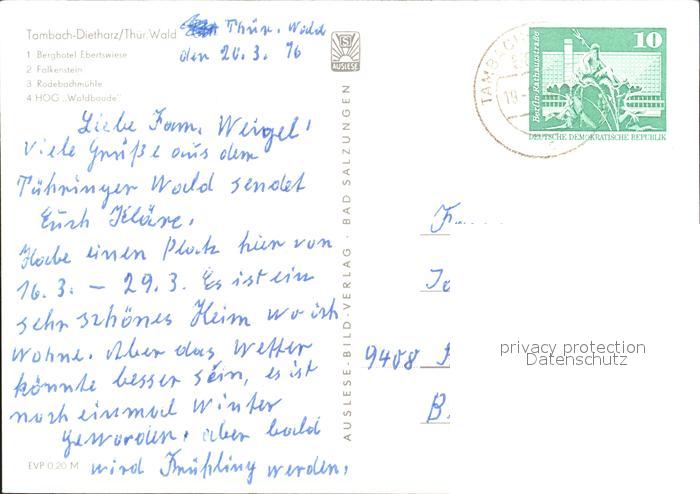 Tambach-Dietharz/Thür. Wald
1 Berghotel Ebertswiese
2 Falkenstein
3 Rodebachmühle
4 HOG „Waldbaude"
Thür. Wald
den 20.3. 76
Liebe Fam. Weigel!
Viele Grüße aus dem
Tühringer Wald sendet
Euch Kläre.
Habe einen Platz hier von
16.3. – 29.3. Es ist ein
sehr schönes Heim wo ich
wohne. Aber das Wetter
könnte besser sein, es ist
noch einmal Winter
geworden, aber bald
wird Frühling werden.
EVP 0,20 M
AUSLESE
AUSLESE-BILD-VERLAG · BAD SALZUNGEN
TAMBACH
10
Berlin-Rathausstraße
DEUTSCHE DEMOKRATISCHE REPUBLIK
9408
B.
privacy protection
Datenschutz